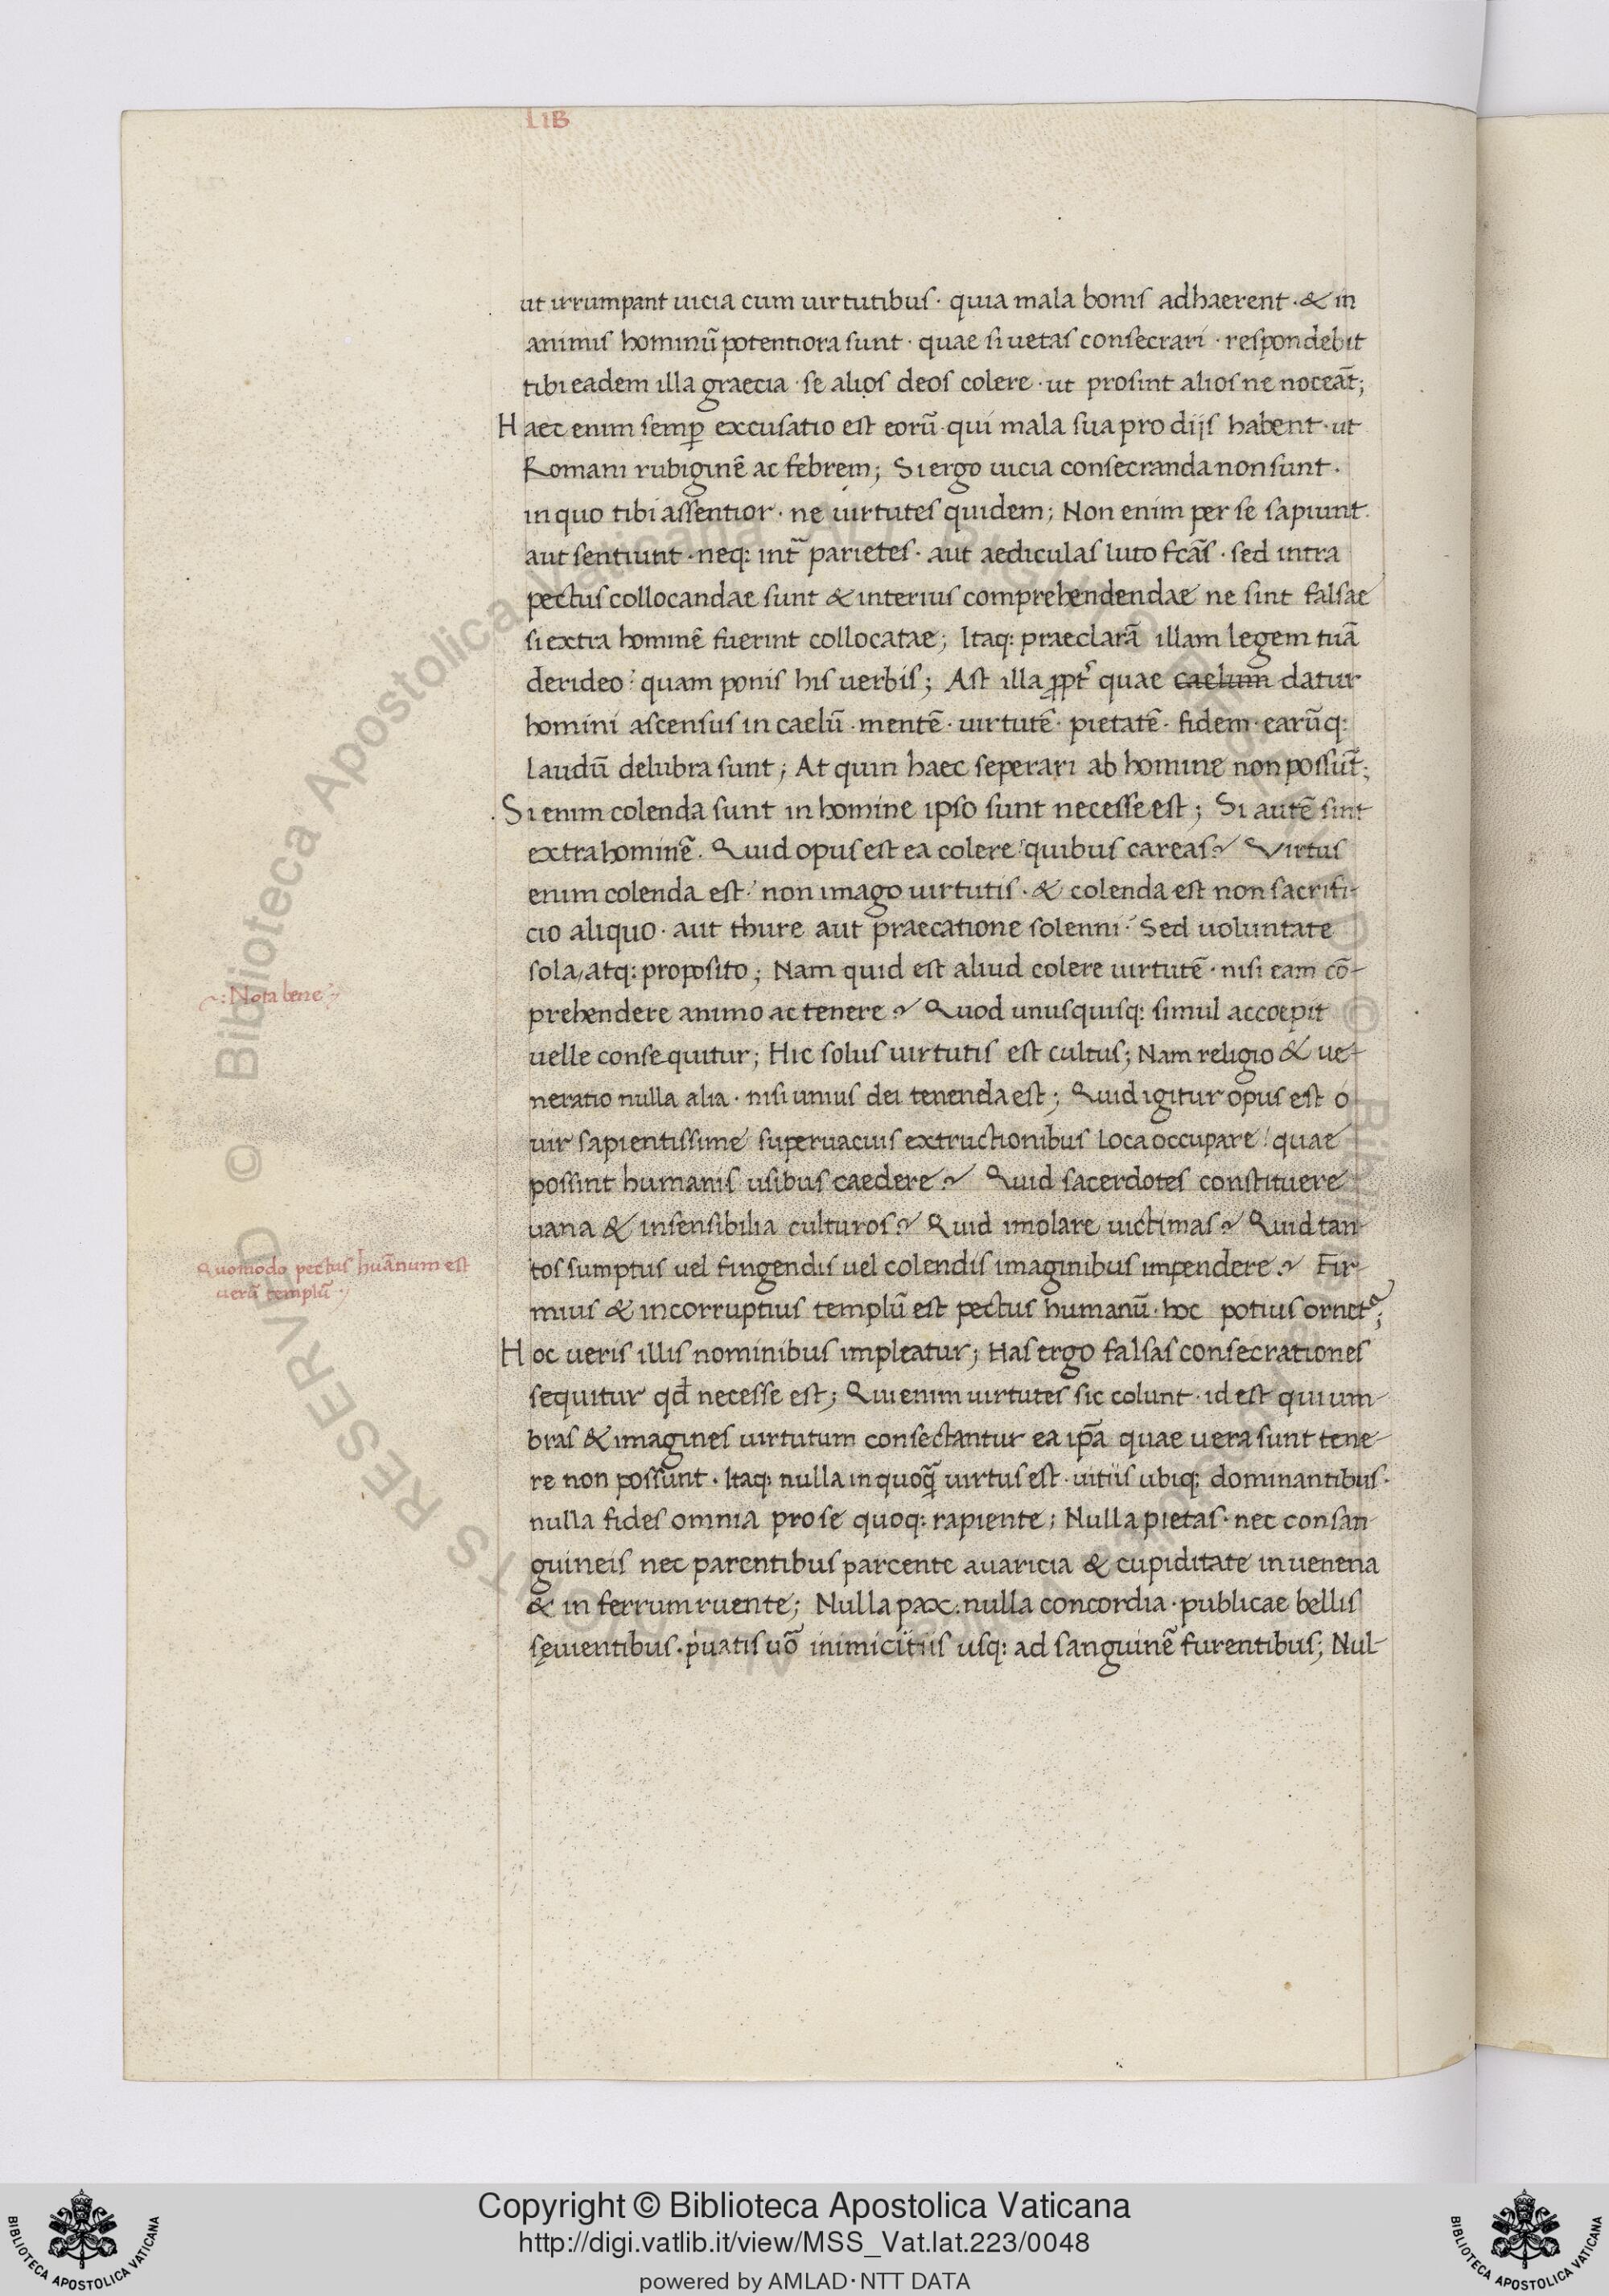 LIB
ut irrumpant uicia cum uirtutibus · quia mala bonis adhaerent · & in
animis hominū potentiora sunt · quae si uetas consecrari · respondebit
tibi eadem illa graecia · se alios deos colere · ut prosint alios ne noceāt;
Haec enim semp̱ excusatio est eorū · qui mala sua pro dijs habent · ut
Romani rubiginē ac febrem; Si ergo uicia consecranda non sunt ·
in quo tibi assentior · ne uirtutes quidem; Non enim per se sapiunt
aut sentiunt · neq: int̄ parietes · aut aediculas luto fcās · sed intra
pectus collocandae sunt & interius comprehendendae ne sint falsae
si extra hominē fuerint collocatae; Itaq: praeclarā illam legem tuā
derideo · quam ponis his uerbis; Ast illa ꝓpt̄ quae caelum datur
homini ascensus in caelū · mentē · uirtutē · pietatē · fidem · earūq:
laudū delubra sunt; At quin haec seperari ab homine non possūt;
Si enim colenda sunt in homine ipso sunt necesse est; Si autē sint
extra hominē. Quid opus est ea colere quibus careas? Virtus
enim colenda est · non imago uirtutis · & colenda est non sacrifi-
cio aliquo · aut thure aut praecatione solenni · Sed uoluntate
sola, atq: proposito; Nam quid est aliud colere uirtutē · nisi eam cō-
~: Nota bene
prehendere animo ac tenere? Quod unusquisq: simul accoepit
uelle consequitur; Hic solus uirtutis est cultus; Nam religio & ue-
neratio nulla alia · nisi unius dei tenenda est; Quid igitur opus est o
uir sapientissime superuacuis extructionibus loca occupare quae
possint humanis usibus caedere? Quid sacerdotes constituere
uana & insensibilia culturos? Quid imolare uictimas? Quid tan-
tos sumptus uel fingendis uel colendis imaginibus impendere? Fir-
Quomodo pectus huānum est
uerū templū
mius & incorruptius templū est pectus humanū · hoc potius ornet²;
Hoc ueris illis nominibus impleatur; Has ergo falsas consecrationes
sequitur qđ necesse est; Qui enim uirtutes sic colunt · id est qui um-
bras & imagines uirtutum consectantur ea ip̄a quae uera sunt tene-
re non possunt · Itaq: nulla in quoq̄ uirtus est · uitiis ubiq: dominantibus ·
nulla fides omnia pro se quoq: rapiente; Nulla pietas · nec consan-
guineis nec parentibus parcente auaricia & cupiditate in uenena
& in ferrum ruente; Nulla pax. nulla concordia · publicae bellis
sęuientibus · puatis uō inimicitiis usq: ad sanguinē furentibus; Nul-
Copyright © Biblioteca Apostolica Vaticana
http://digi.vatlib.it/view/MSS_Vat.lat.223/0048
powered by AMLAD·NTT DATA
BIBLIOTECA APOSTOLICA VATICANA
BIBLIOTECA APOSTOLICA VATICANA